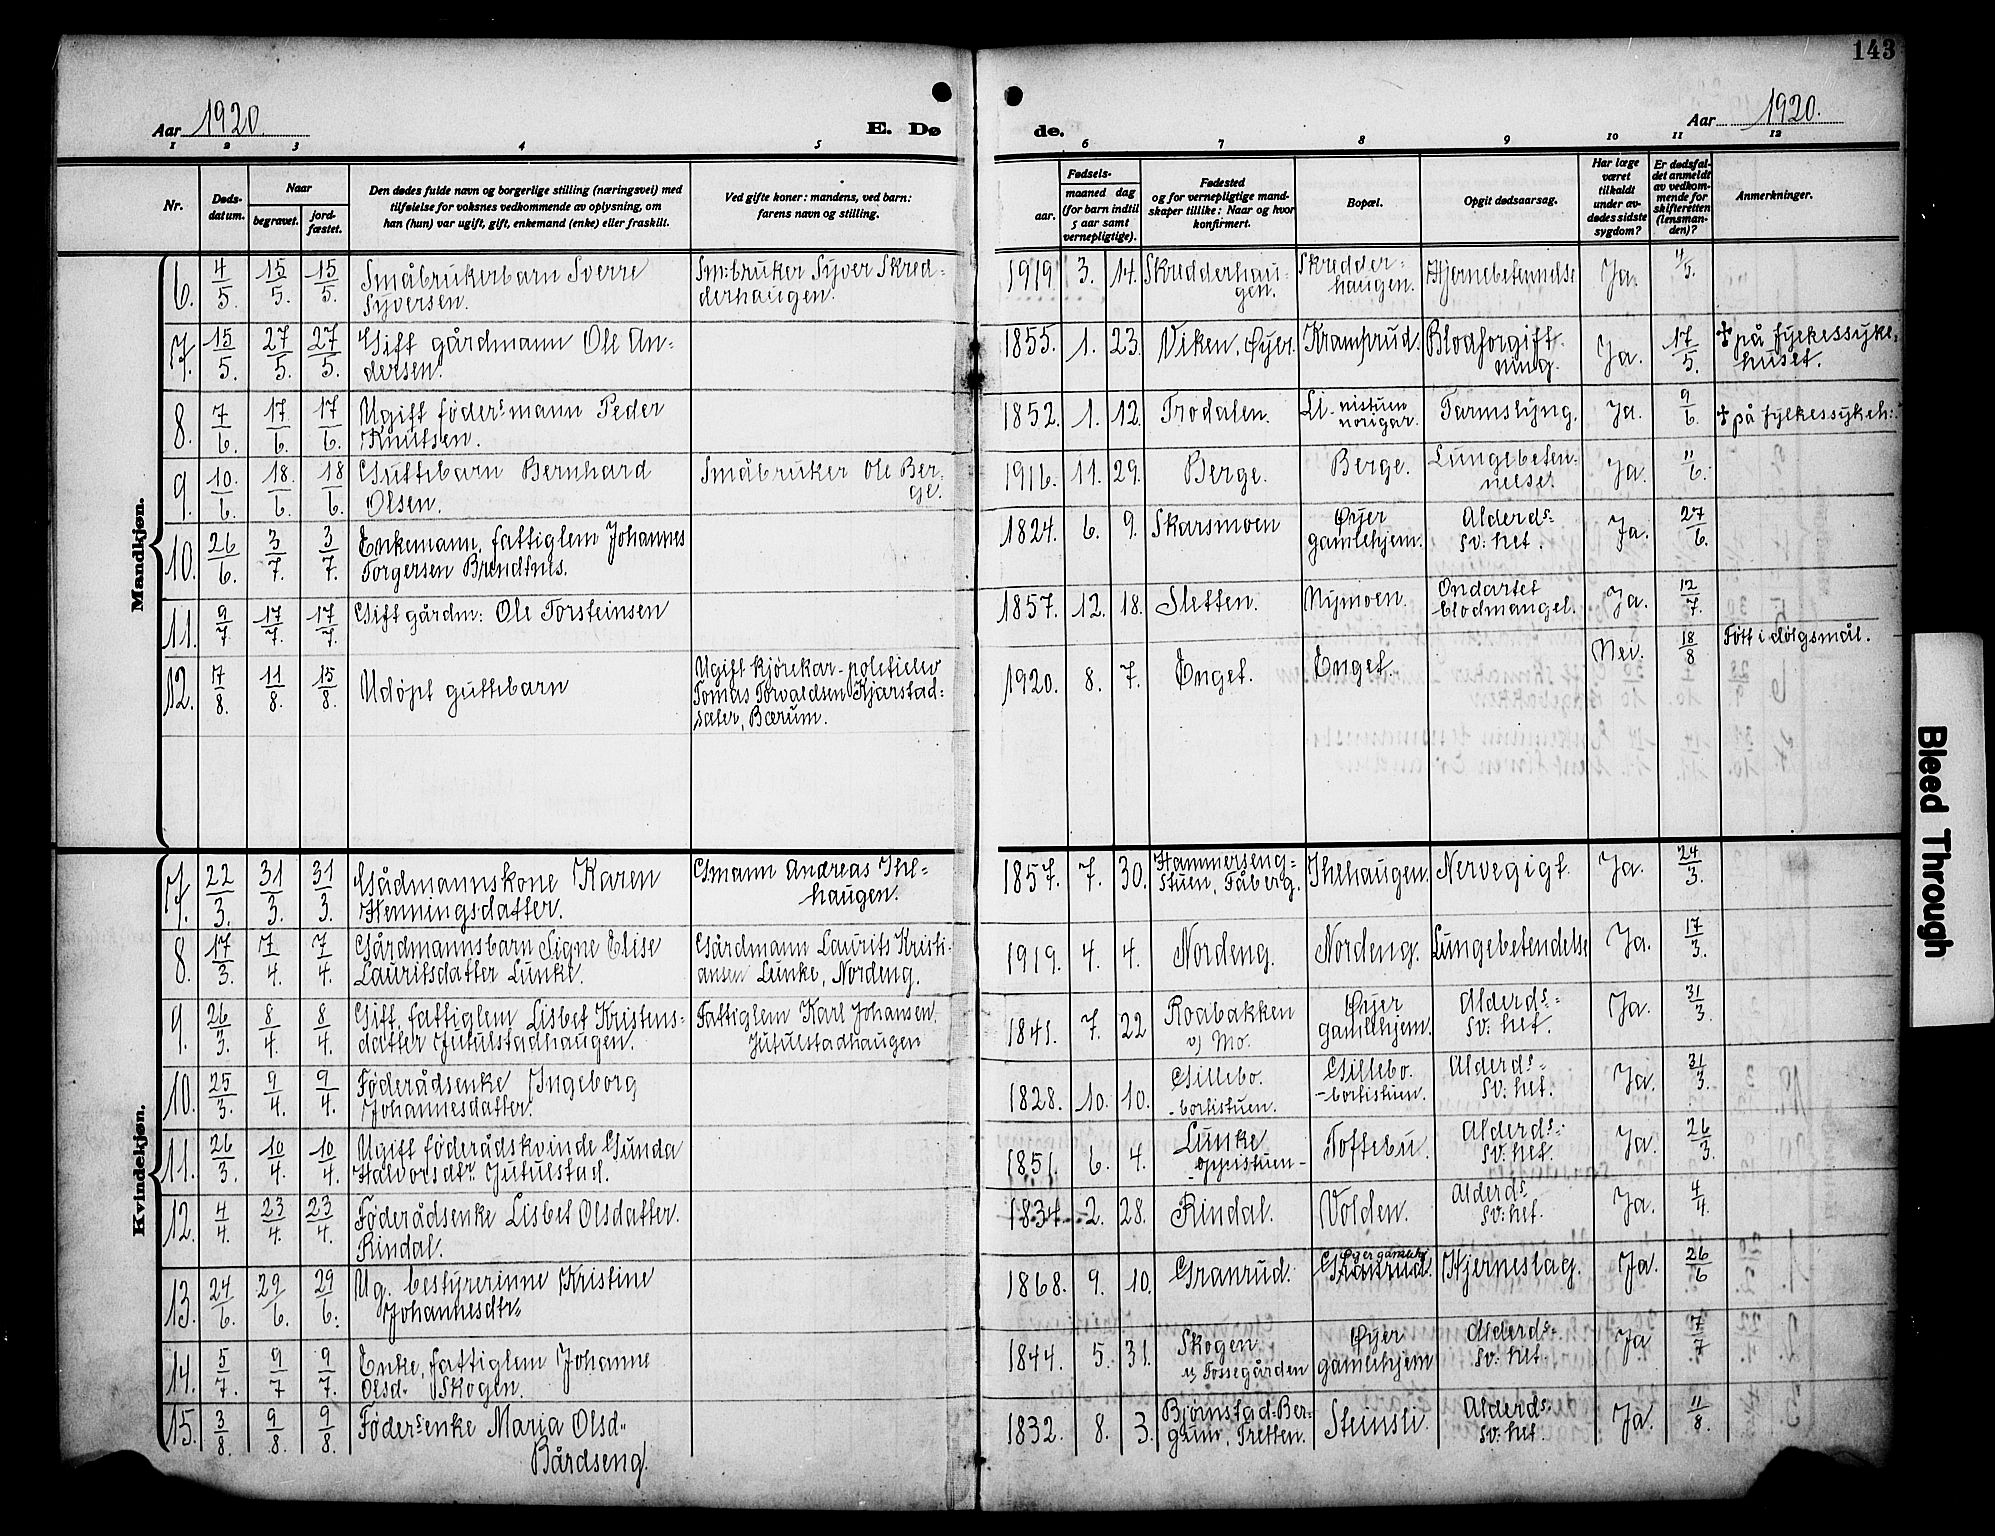 143
Aar 1920.
E. Dø
de.
Aar 1920.
1 2 3 4 5
6 7 8 9 10 11 12
Nr.
Døds-
datum.
Naar
begravet.
jord-
fæstet.
Den dødes fulde navn og borgerlige stilling (næringsvei) med
tilføielse for voksnes vedkommende av oplysning, om
han (hun) var ugift, gift, enkemand (enke) eller fraskilt.
Ved gifte koner: mandens, ved barn:
farens navn og stilling.
Fødsels-
aar.
maaned dag
(for barn indtil
5 aar samt
vernepligtige).
Fødested
og for vernepligtige mand-
skaper tillike: Naar og hvor
konfirmert.
Bopæl.
Opgit dødsaarsag.
Har læge
været
tilkaldt
under av-
dødes sidste
sygdom?
Er dødsfal-
det anmeldt
av vedkom-
mende for
skifteretten
(lensman-
den)?
Anmerkninger.
Mandkjøn.
6. 4/5. 15/5. 15/5. Småbrukerbarn Sverre
Syversen.
Sm:bruker Syver Skred-
derhaugen.
1919 3. 14. Skredderhau-
gen.
Skredder-
haugen.
Hjernebetennelse Ja. 4/5.
7. 15/5. 27/5. 27/5. Gift gårdmann Ole An-
dersen.
1855. 1. 23. Viken, Øyer. Kramprud. Blodforgift-
ning.
Ja. 17/5. ✝ på fylkessyke-
huset.
8. 7/6. 17/6. 17/6. Ugift føder^s mann Peder
Knutsen.
1852. 1. 12. Trodalen. Li-nistuen
nougar.
Tarmslyng. Ja. 9/6. ✝ på fylkessykeh:
9. 10/6. 18/6. 18/6. Guttebarn Bernhard
Olsen.
Småbruker Ole Ber-
ge.
1916. 11. 29. Berge. Berge. Lungebeten-
nelse.
Ja. 11/6.
10. 26/6. 3/7. 3/7. Enkemann, fattiglem Johannes
Torgersen Brendlnes.
1824. 6. 9. Skarsmoen Øyer
gamlehjem.
Alderd^s-
sv:het.
Ja. 27/6.
11. 9/7. 17/7. 17/7. Gift gårdm: Ole Torsteinsen
1857. 12. 18. Sletten. Nymoen. Ondartet
blodmangel.
Ja. 12/7.
12. 17/8. 11/8. 15/8. Udøpt guttebarn
Ugift kjørekar-politielev
Tomas Torvaldsen Kjarstad-
sater, Bærum.
1920. 8. 7. Enget. Enget. Nei. 18/8 Føtt i dølgsmål.
Kvindekjøn.
7. 22/3. 31/3. 31/3. Gådmannskone Karen
Henningsdatter.
Gmann Andreas Ihle-
haugen.
1857. 7. 30. Hammerseng-
stuen, Fåberg.
Ihlehaugen. Nervegigt. Ja. 24/3.
8. 17/3 7/4. 7/4. Gårdmannsbarn Signe Elise
Lauritsdatter Lunke.
Gårdmann Laurits Kristi-
ansen Lunke, Nordeng.
1919. 4. 4. Nordeng. Nordeng. Lungebetendelse Ja. 17/3.
9. 26/3. 8/4. 8/4. Gift, fattiglem Lisbet Kristens-
datter Jutulstadhaugen.
Fattiglem Karl Johansen
Jutulstadhaugen
1841. 7. 22 Roabakken
v) Mo.
Øyer
gamlehjem.
Alderd^s-
sv:het.
Ja. 31/3.
10. 25/3. 9/4. 9/4. Føderådsenke Ingeborg
Johannesdatter.
1828. 10. 10. Gillebo.
-bortistuen.
Gillebo.
-bortistuen.
Alderd^s-
sv:het.
Ja. 31/3.
11. 26/3. 10/4. 10/4. Ugift føderådskvinde Gunda
Halvorsdtr. Jutulstad.
1851. 6. 4. Lunke
-oppistuen-
Toftebu. Alderd^s-
sv:het.
Ja. 26/3.
12. 4/4. 23/4. 23/4. Føderådsenke Lisbet Olsdatter.
Rindal.
1834. 2. 28. Rindal. Volden. Alderd^s
sv:het.
Ja. 4/4.
13. 24/6. 29/6. 29/6. Ug. bestyrerinne Kristine
Johannesdtr.
1868. 9. 10. Granrud. Øyer gamleh.
Granrud.
Hjerneslag. Ja. 26/6
14. 5/7. 9/7 9/7. Enke, fattiglem Johanne
Olsd. Skogen.
1844. 5. 31. Skogen
u, Fossegården
Øyer
gamlehjem
Alderd^s-
sv:het
Ja 7/7
15. 3/8. 9/8. 9/8. Føder^s enke Marja Olsd.
Bårdseng.
1832. 8. 3. Bjørnstad-Ber-
gum, Tretten.
Steinsli. Alderd^s.
sv:het.
Ja. 11/8.
Bleed Through